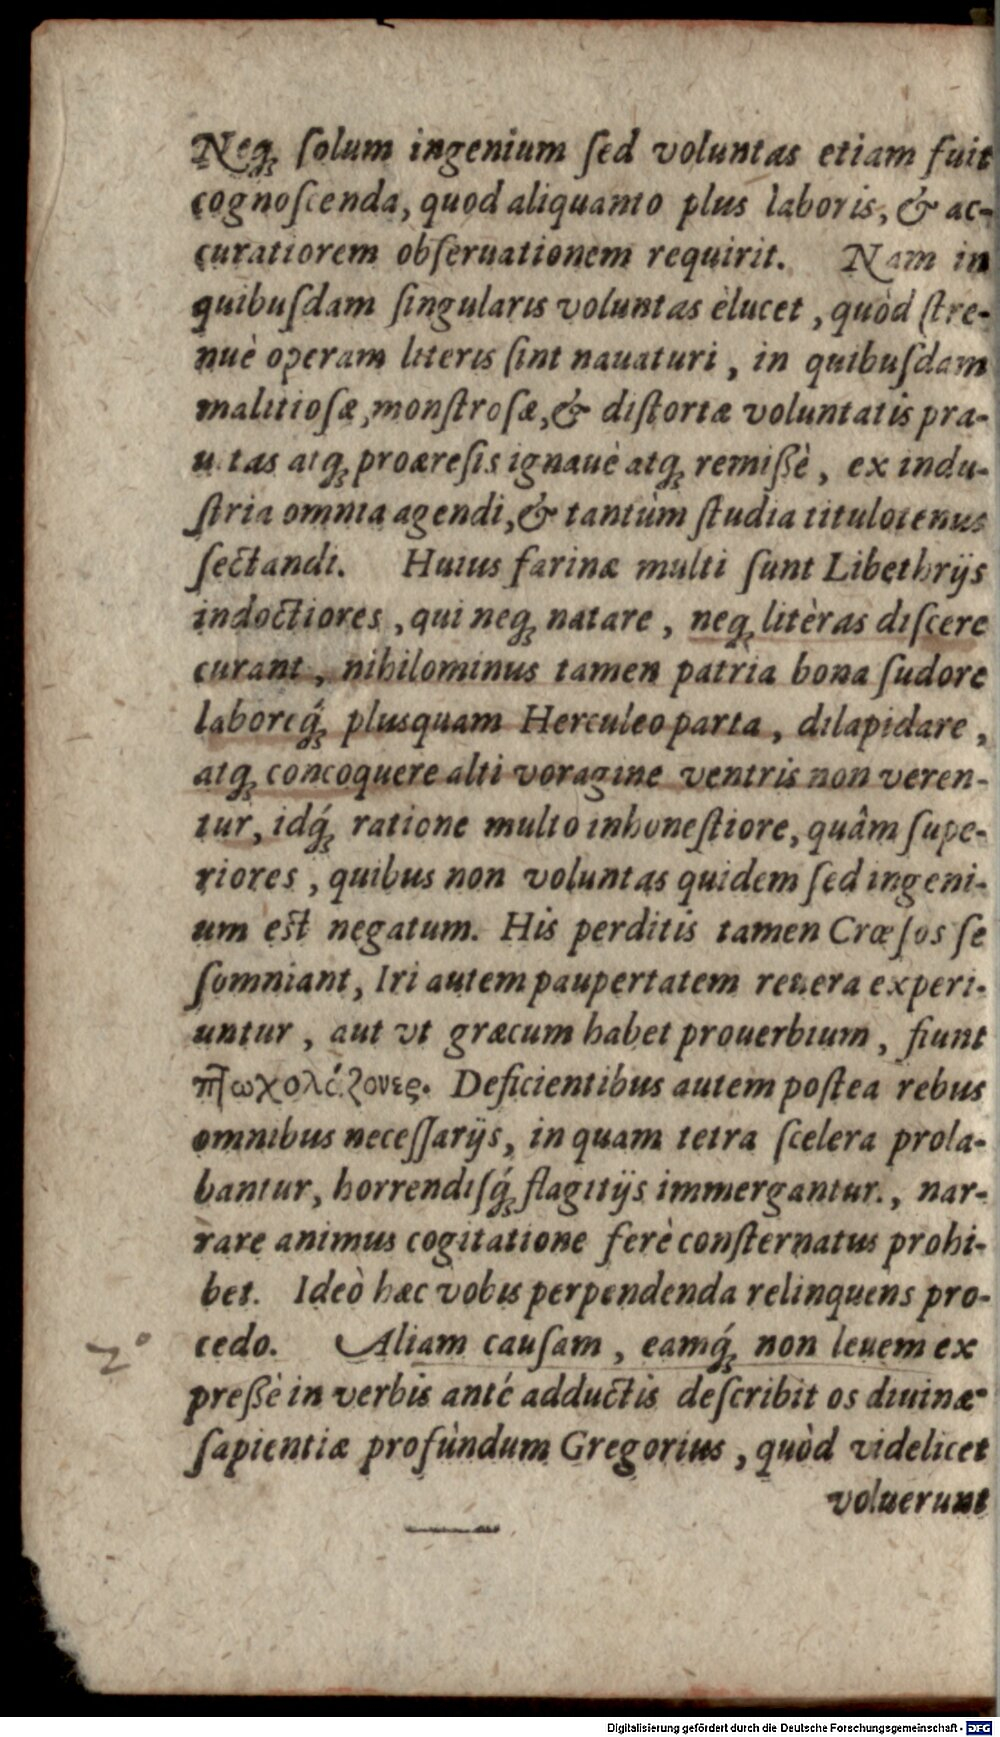 Neq́; ſolum ingenium ſed voluntas etiam fuit
cognoſcenda, quod aliquanto plus laboris, & ac-
curatiorem obſeruationem requirit. Nam in
quibuſdam ſingularis voluntas èlucet, quòd ſtre-
nuè operam literis ſint nauaturi, in quibuſdam
malitioſæ, monſtroſæ, & diſtortæ voluntatis pra-
uitas atq; proæreſis ignauè atq; remißè, ex indu-
ſtria omnia agendi, & tantùm ſtudia titulotenus
ſectandi. Huius farinæ multi ſunt Libethrijs
indoctiores, qui neq; natare, neq; litèras diſcere
curant, nihilominus tamen patria bona ſudore
laboreq́; plusquam Herculeo parta, dilapidare,
atq; concoquere alti voragine ventris non veren-
tur, idq́; ratione multo inhoneſtiore, quâm ſupe-
riores, quibus non voluntas quidem ſed ingeni-
um eſt negatum. His perditis tamen Crœſos ſe
ſomniant, Iri autem paupertatem reuera experi-
untur, aut vt græcum habet prouerbium, fiunt
πτωχολάζονες. Deficientibus autem poſtea rebus
omnibus neceſſarijs, in quam tetra ſcelera prola-
bantur, horrendiſq́; flagitijs immergantur., nar-
rare animus cogitatione ferè conſternatus prohi-
bet. Ideò hæc vobis perpendenda relinquens pro-
cedo. Aliam cauſam, eamq́; non leuem ex
preßè in verbis anté adductis deſcribit os diuinæ
ſapientiæ profùndum Gregorius, quòd videlicet
voluerunt
2°
Digitalisierung gefördert durch die Deutsche Forschungsgemeinschaft - DFG